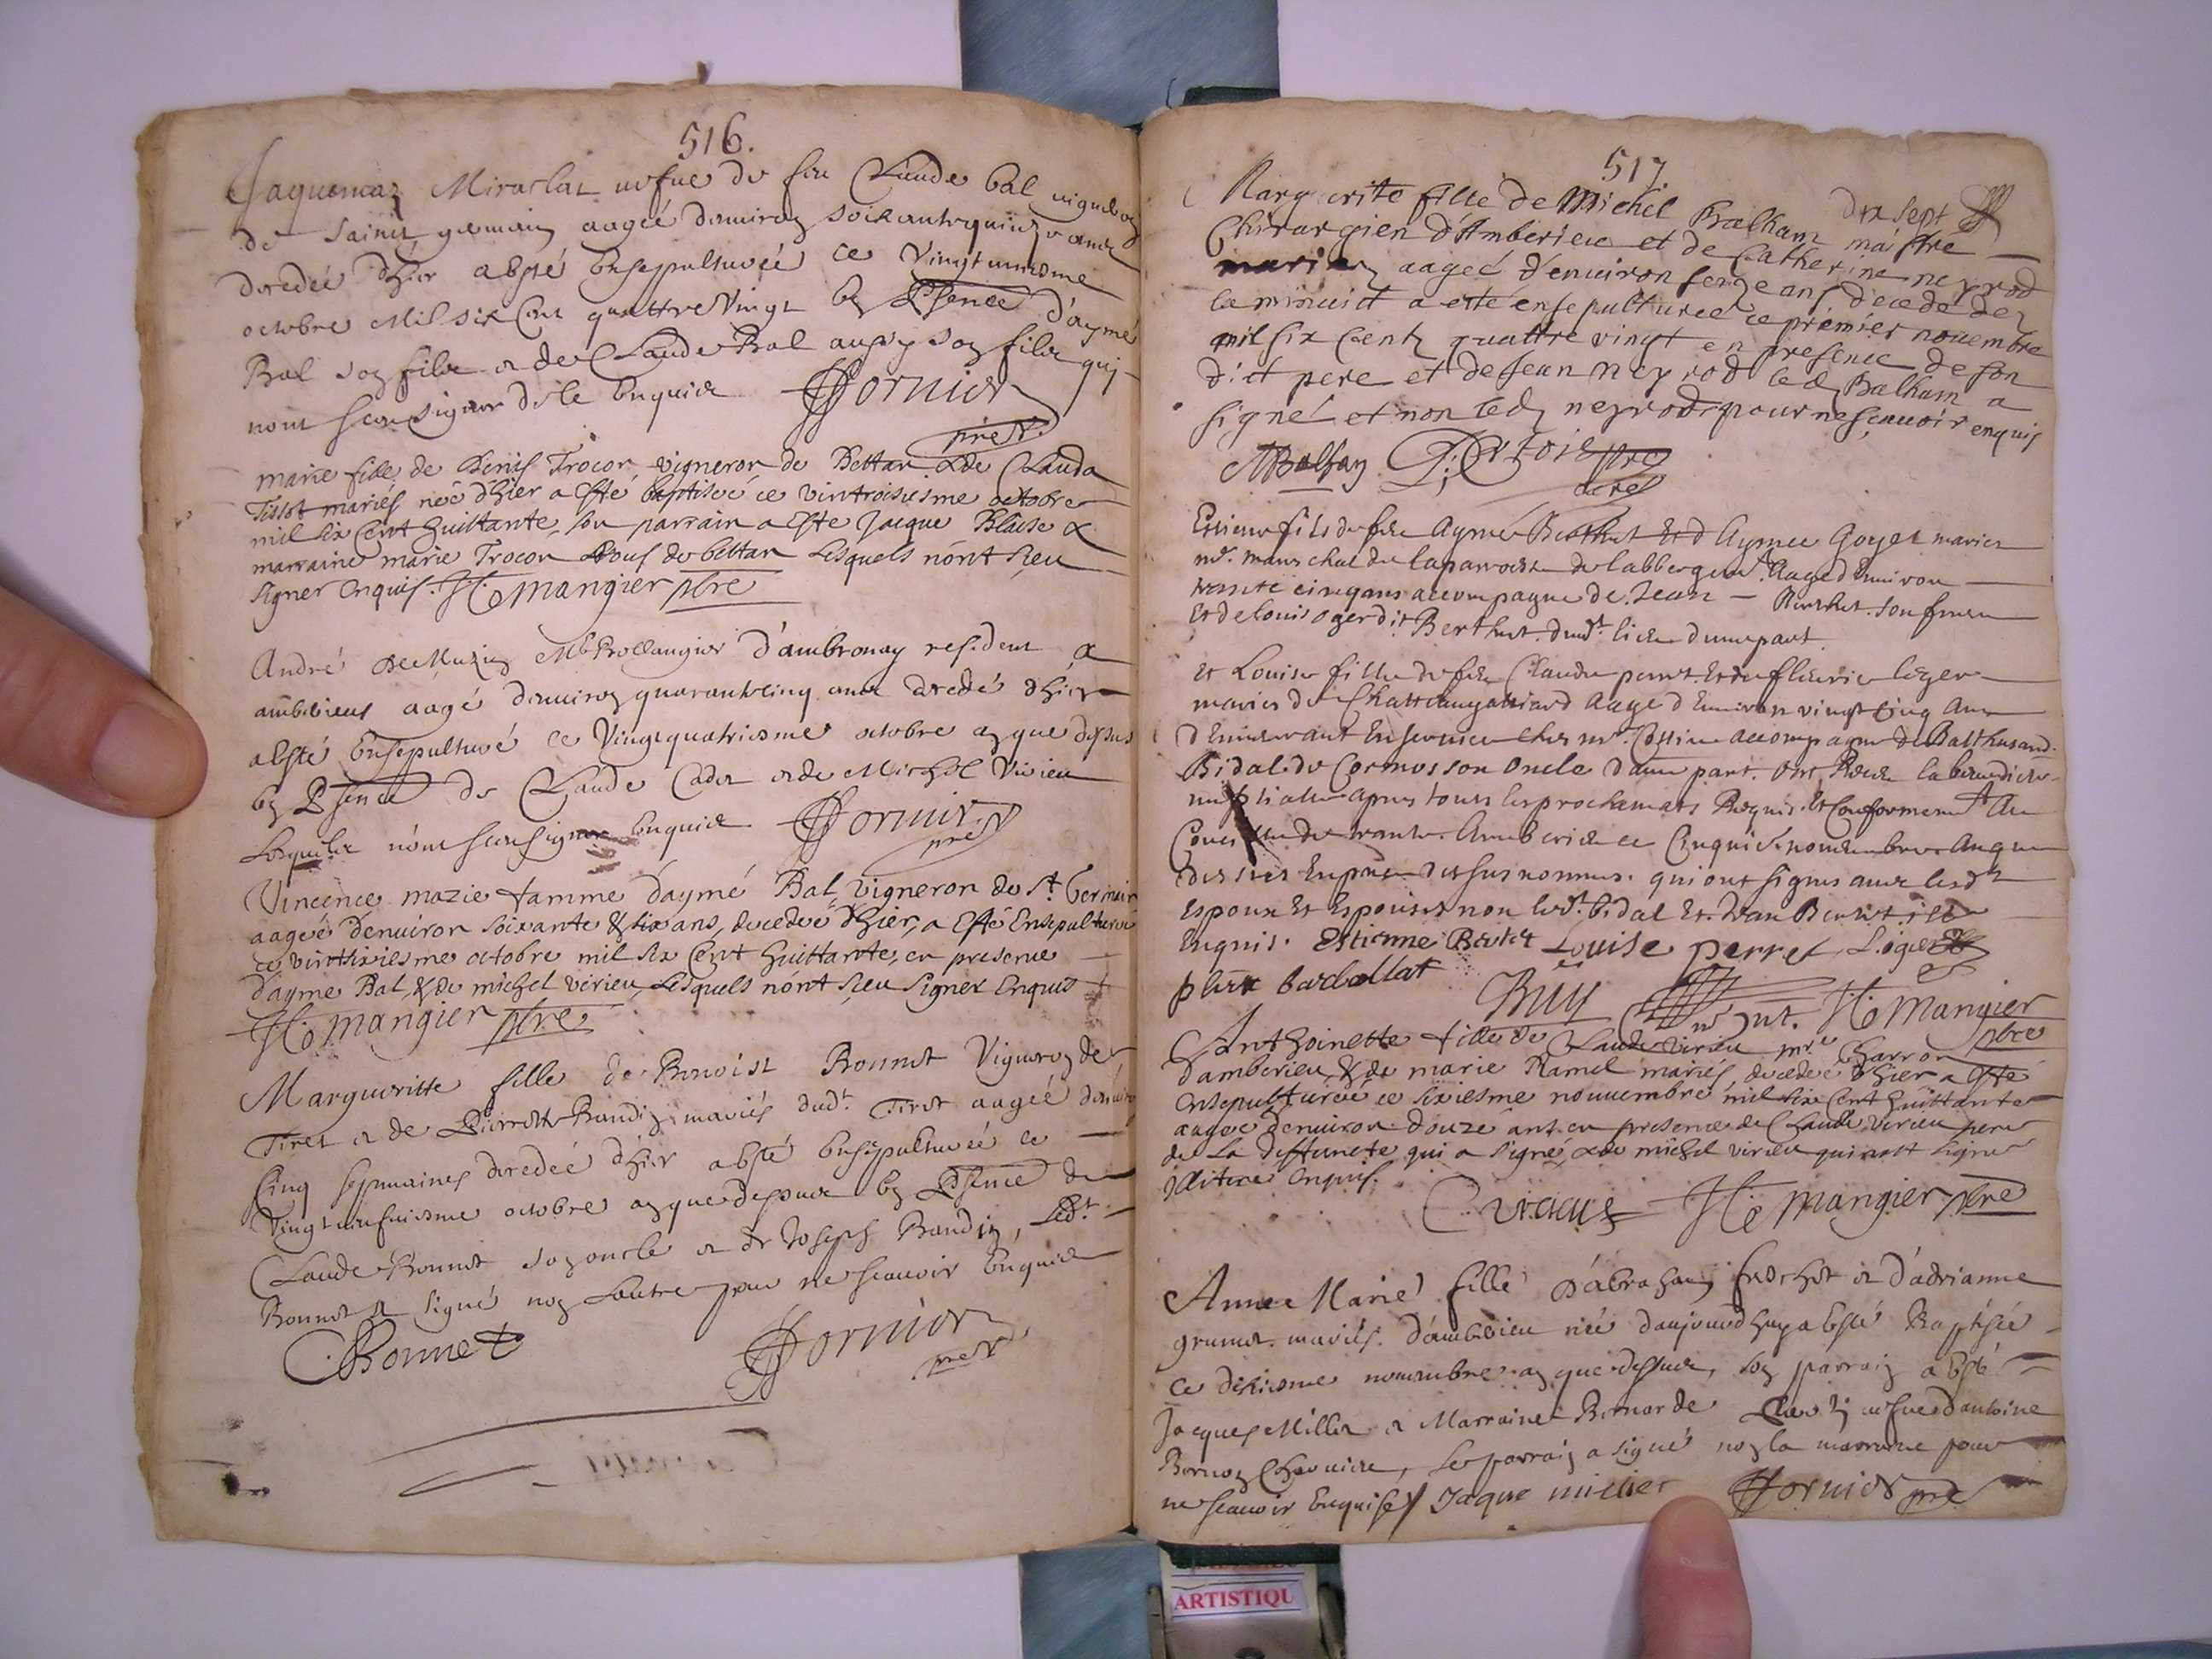 516.
Jaquemaz Miraclaz vefue de feu Claude Bal vigneron
de Sainct germain aagée denviron soixantequinze ans
decedée dhier a esté ensepulturée ce vingtuniesme
octobre Mil six cent quattre vingt en presence d'aymé
Bal son filz et de Claude Bal aussy son filz qui
nont sceu signer de ce enquis Fornier
pre
marie fille de Denis Trocon vigneron de Bettan & de Clauda
Tissot mariés née dhier a esté baptisée ce vintroisiesme octobre
mil six Cent huittante, son parrain a esté Jacque Blaise &
marraine marie Trocon tous de bettan lesquels nont sceu
signer enquis. mangier pbre
André d'ambronay resident a
ambérieux aagé denviron quarantecinq ans decedé dhier
a esté ensepulturé ce vingtquatriesme octobre an que dessus
en presence de Claude Cader et de Michel Virieu
lesquelz nont sceu signer enquis Fornier
pre
Vincence mazie famme d'aymé Bal vigneron de St Germain
aagée denuiron soixante & six ans, decedée dhier, a esté Ensepulturée
ce vintsixiesme octobre mil six Cent huittante, en presence
d'ayme Bal, & de michel virieu, lesquels nont sceu signer Enquis
mangier pbre
Margueritte fille de Benoist Bonnet Vigneron de
Tiret et de Pierrette Baudin mariés dudt. Tiret aagée denviron
Cinq sepmaines decedée dhier a esté ensepulturée ce
vingtneufuiesme octobre an que dessus en presence de
Claude Bonnet son oncle et de Joseph Baudin, Ledt.
Bonnet a signé non lautre pour ne scauoir enquis
CBonnet Fornier
pre
517
dix sept
Marguerite fille de Michel Balham maistre
Chirurgien d'Amberieu et de Catherine neyrod
mariez aagée d'enuiron ans decedée
la minuict a esté ensepulturée ce premier nouembre
mil six Cent quattre vingt en presence de son
dict pere et de Jean Neyrod led Balham a
signé et non led neyrod pour ne scauoir enquis
MBalham pre
Estienne fils de feu Ayme Berthet Et d Aymee Goyet mariez
mr. mareschal de la parroisse de labbergement Aage d Enuiron
trante cinq ans accompagne de Jean Berthet son frere
Et de Louis oger dit Berthet dudt. lieu d une part
Et Louise fille de feu Claude perret Et de fleurie leger
mariez de Chattaugaliard Aage d Enuiron vingt cinq Ans
accompagne de Balthesard
Bidal de Cormos son oncle d autre part. ont Receu la benediction
nuptialle apres tous les proclamats Requis Et Conformement Au
Concille de trante. Amberieu ce Cinquie. nouembre An que
dessus En presence des susnommes. qui ont signes auec lesdts
Espoux Et Espouses non ledt. bidal Et Jean Berthet
Enquis. Estienne Bertet Louise perret L. oger
barbollat Buy mangier
pbre
Anthoinette fille de Claude virieu mre Charron
d'amberieu & de marie Ramel mariés, decedée dhier a esté
ensepulturée ce sixiesme nouuembre mil six Cent huittante
aagée denuiron douze ans en presence de Claude virieu pere
de La deffuncte qui a signé, & de michel virieu qui na signé
illiteré enquis.
C virieu mangier pbre
Anne Marie fille d'abraham frechet et d'adrianne
grumet mariés d'amberieu née daujourdhuy a esté Baptisée
ce dixiesme nouembre an que dessus, son parrain a esté
Jacques Millet et Marraine Bernarde vefue dantoine
Bernon, le parrain a signé non la marraine pour
ne scauoir enquise Jaque millet Fornier pre
ARTISTIQU